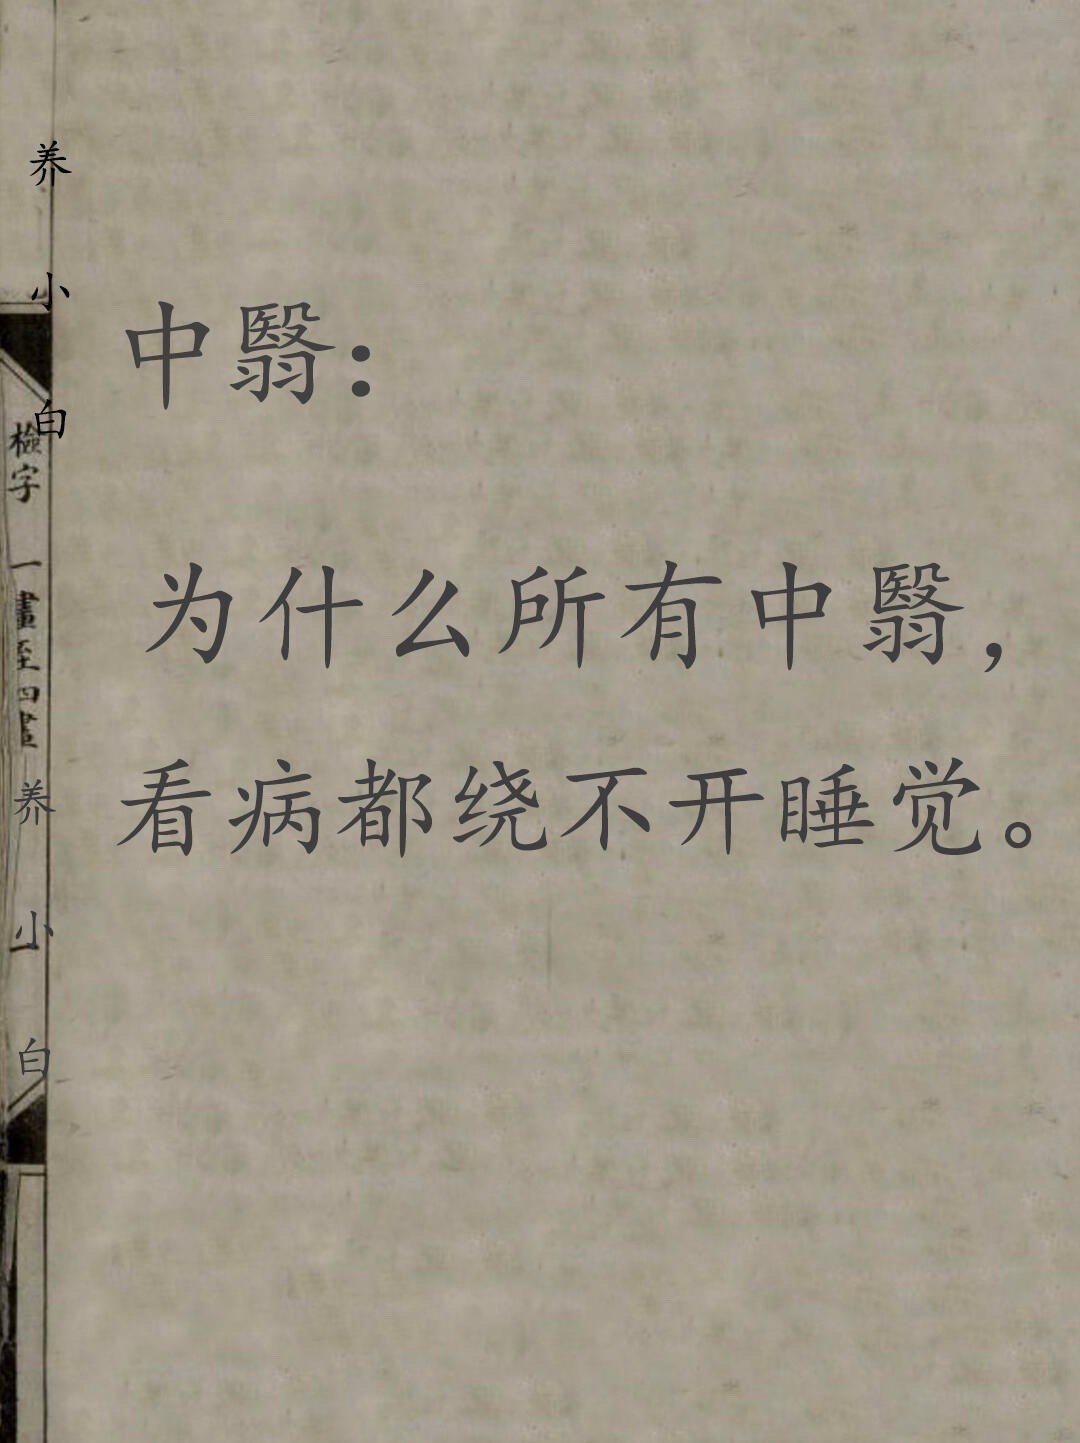 养小白
中翳:
为什么所有中翳,
看病都绕不开睡觉。
檢字 一畫至四畫
养小白